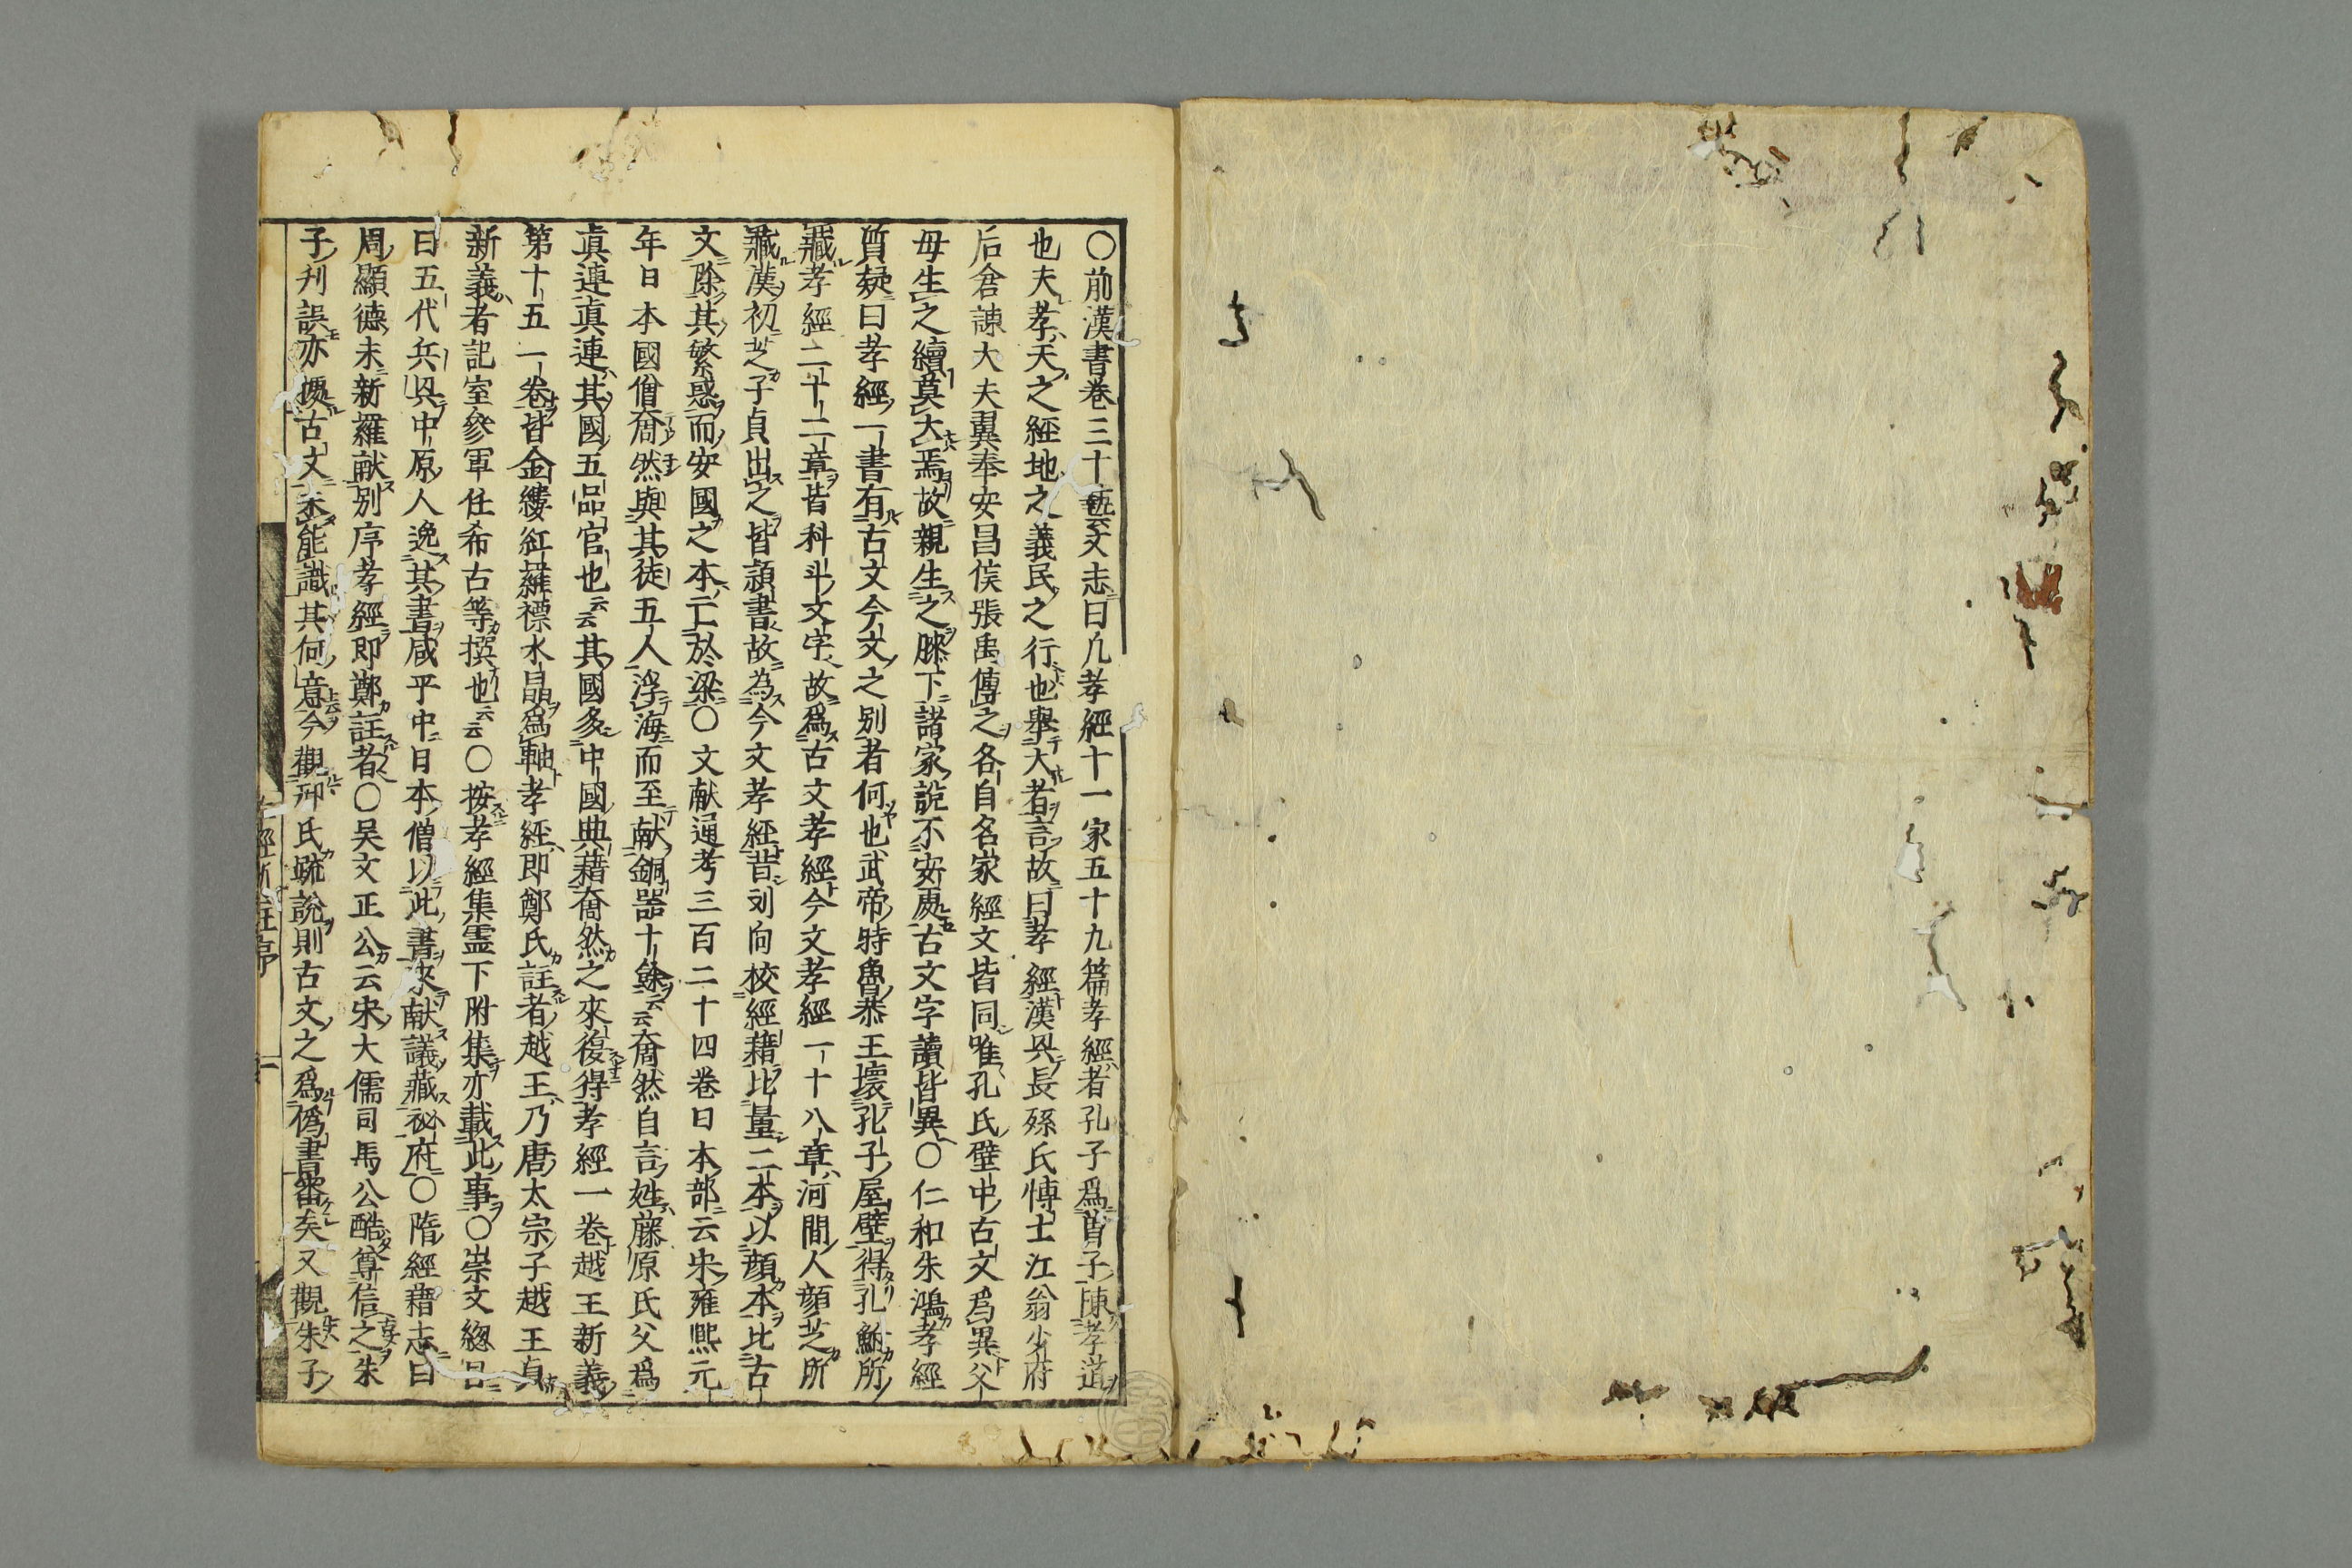 〇前漢書卷三十藝文志曰凡孝經十一家五十九篇孝經者孔子爲曽子陳孝道
也夫孝天之經地之義民之行也舉大者言故曰孝經漢興長孫氏愽士江翁少府
后倉諫大夫翼奉安昌侯張禹傳之各自名家經文皆同唯孔氏壁中古文爲異父
母生之續莫大焉故親生之膝下諸家說不安處古文字讀皆異〇仁和朱鴻孝經
質疑曰孝經一書有古文今文之別者何也武帝時魯恭王壞孔子屋壁得孔鮒所
藏孝經二十二章皆科斗文字故爲古文孝經今文孝經一十八章河間人顔芝所
藏漢初芝子貞出之皆隷書故為今文孝經昔刘向校經藉比量二本以顔本比古
文除其繁惑而安國之本亡於梁〇文献通考三百二十四卷日本部云宋雍熈元
年日本國僧奝然與其徒五人浮海而至献銅器十餘云云奝然自言姓藤原氏父爲
眞連眞連其國五品官也云云其國多中國典藉奝然之來復得孝經一卷越王新義
第十五一卷皆金縷紅羅褾水晶爲軸孝經即鄭氏註者越王乃唐太宗子越王貞
新義者記室參軍任希古等撰也云云〇按孝經集霊下附集亦載此事〇崇文緫目
曰五代兵興中原人逸其書咸平中日本僧以此書來献議藏秘府〇隋經藉志曰
周顯德末新羅献別序孝經即鄭註者〇吴文正公云宋大儒司馬公酷尊信之朱
子刋誤亦據古文未能識其何意今觀邢氏疏說則古文之爲僞書審矣又觀朱子